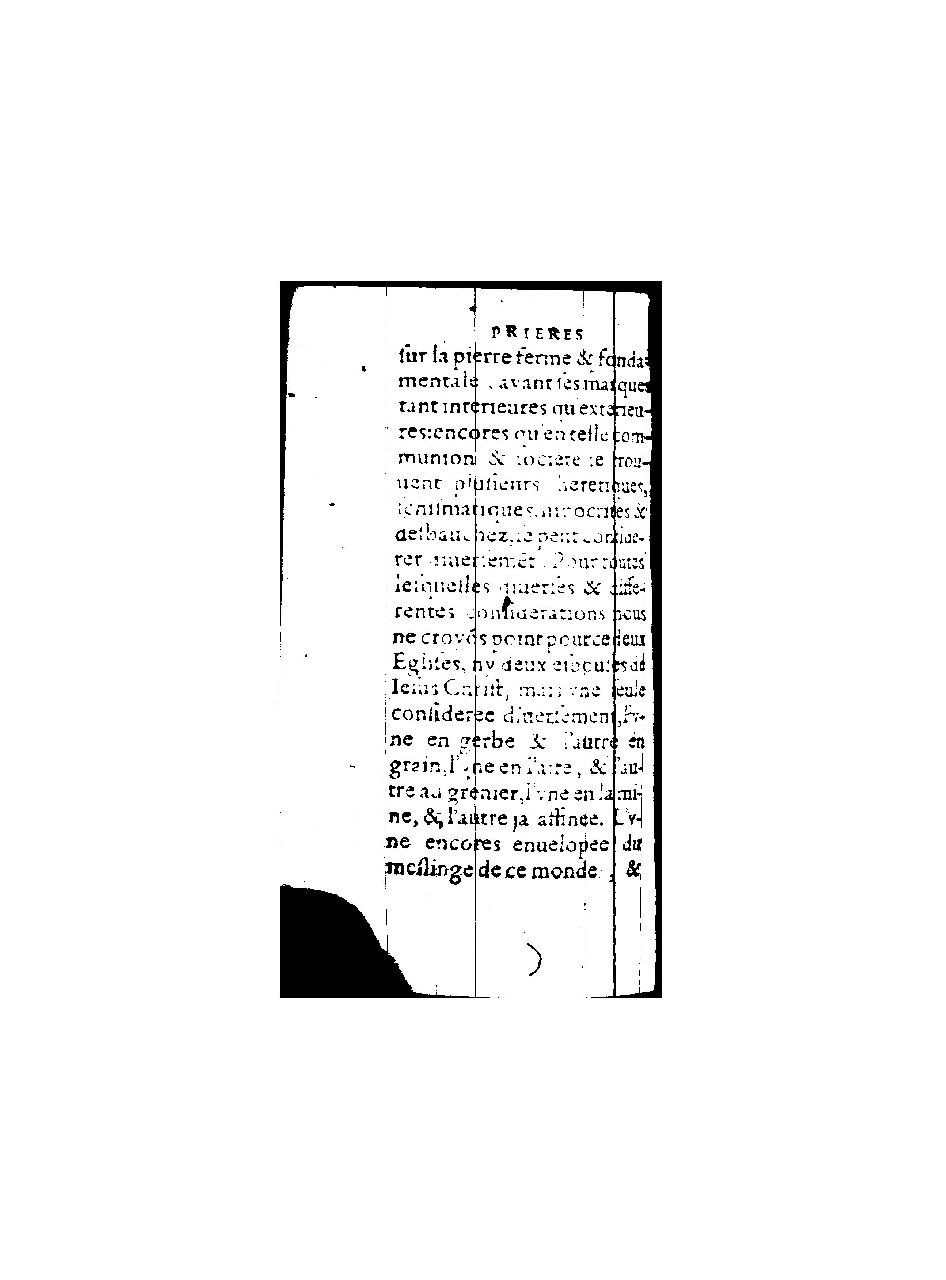 PRIERES
ſur la pierre ferme & fonda-
mentale, ayant ſes marques
tant interieures qu'exterieu-
res: encores qu'en telle com-
munion & ſocieté ſe trou-
uent pluſieurs heretiques,
ſchiſmatiques, hipocrites &
deſbauchez, ſe peut conſide-
rer diuerſemēt. Pour toutes
leſquelles diuerſes & diffe-
rentes conſiderations nous
ne croyōs point pource deux
Egliſes, ny deux eſpouſes de
Ieſus Chriſt, mais vne ſeule
conſideree diuerſement, l'v-
ne en gerbe & l'autre en
grain, l'vne en l'aire, & l'au-
tre au grenier, l'vne en la mi-
ne, & l'autre ja affinee. L'v-
ne encores enuelopee du
meſlinge de ce monde, &